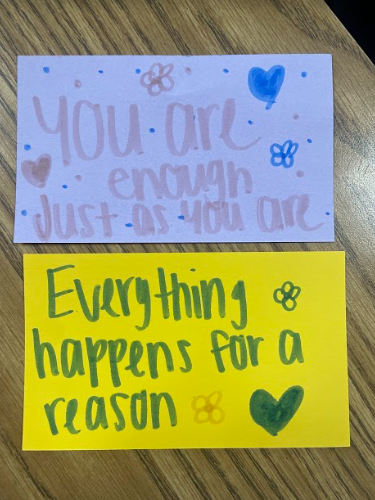 You are
enough
Just as you are
Everything
happens for a
reason